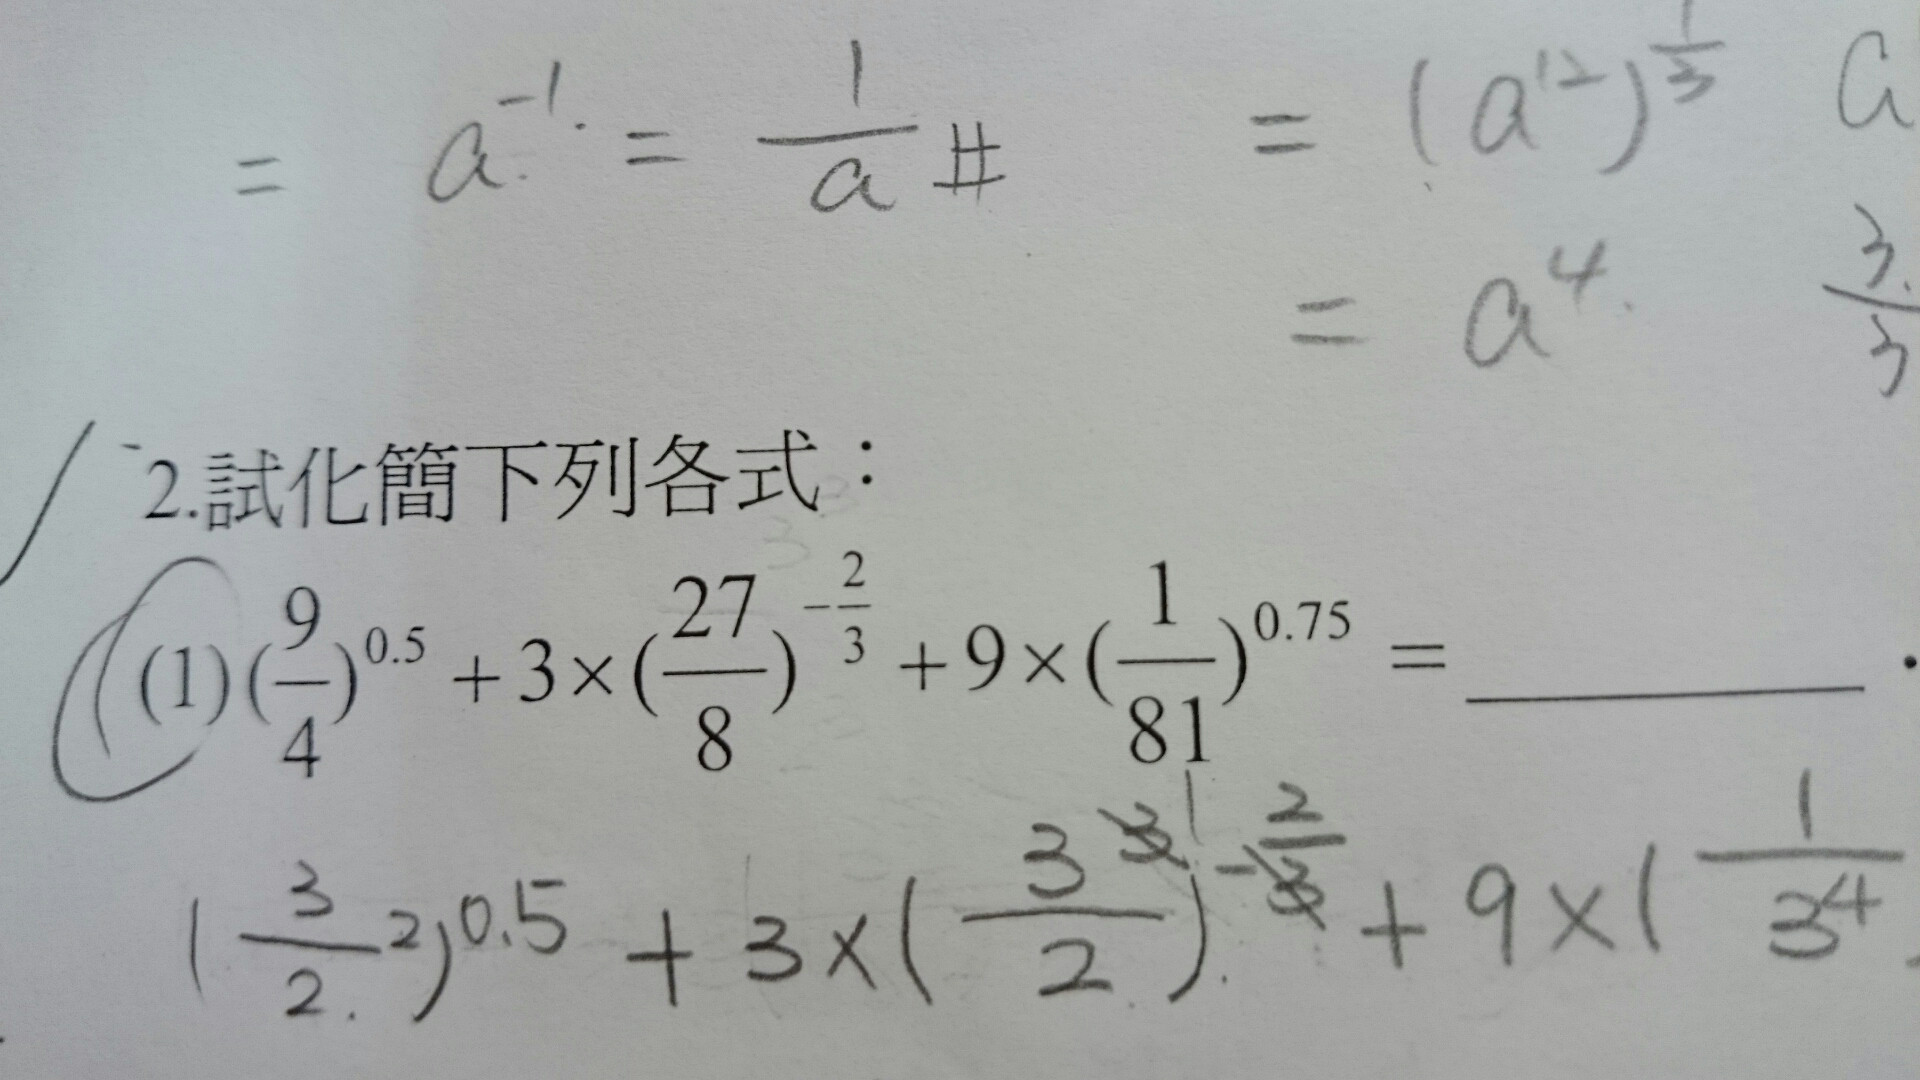 = a^{-1} = \frac{1}{a} # = (a^{12})^{\frac{1}{3}} a
= a^4 \frac{3}{3}
2.試化簡下列各式：
(1)(\frac{9}{4})^{0.5}+3×(\frac{27}{8})^{-\frac{2}{3}}+9×(\frac{1}{81})^{0.75}=________.
(\frac{3}{2}^2)^{0.5} + 3×(\frac{3^3}{2})^{1 -\frac{2}{3}} + 9×(\frac{1}{3^4}